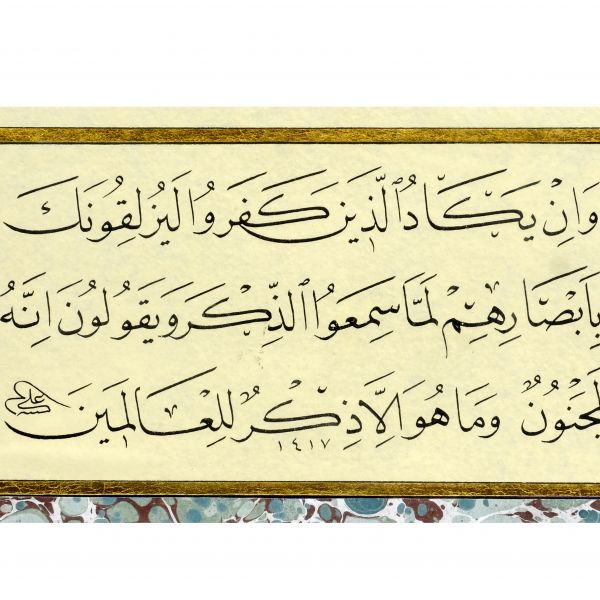 وَاِنْ يَكَادُ الَّذِينَ كَفَرُوا لَيُزْلِقُونَكَ
بِاَبْصَارِهِمْ لَمَّا سَمِعُوا الذِّكْرَ وَيَقُولُونَ اِنَّهُ
لَمَجْنُونٌ وَمَا هُوَ اِلَّا ذِكْرٌ لِلْعَالَمِينَ
١٤١٧